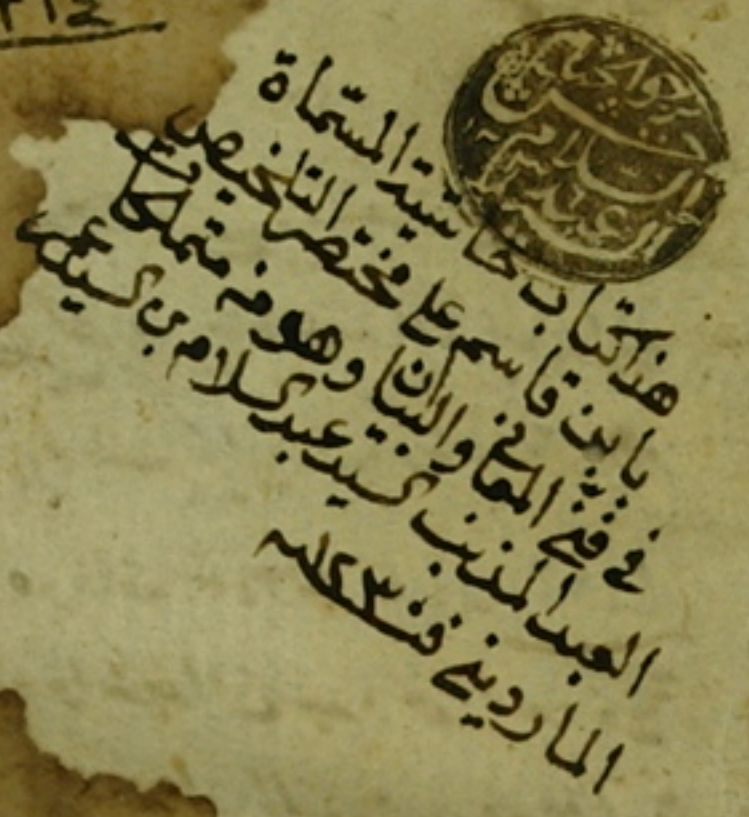 ٣١٤
هذا كتاب حاشية المسماة
بابن قاسم على مختصر التلخيص
في فني المعاني والبيان وهو من متملكات
العبد المذنب السيد عبد السلام بن السيد عمر
المارديني في سنة ١٢٣
عبد السلام